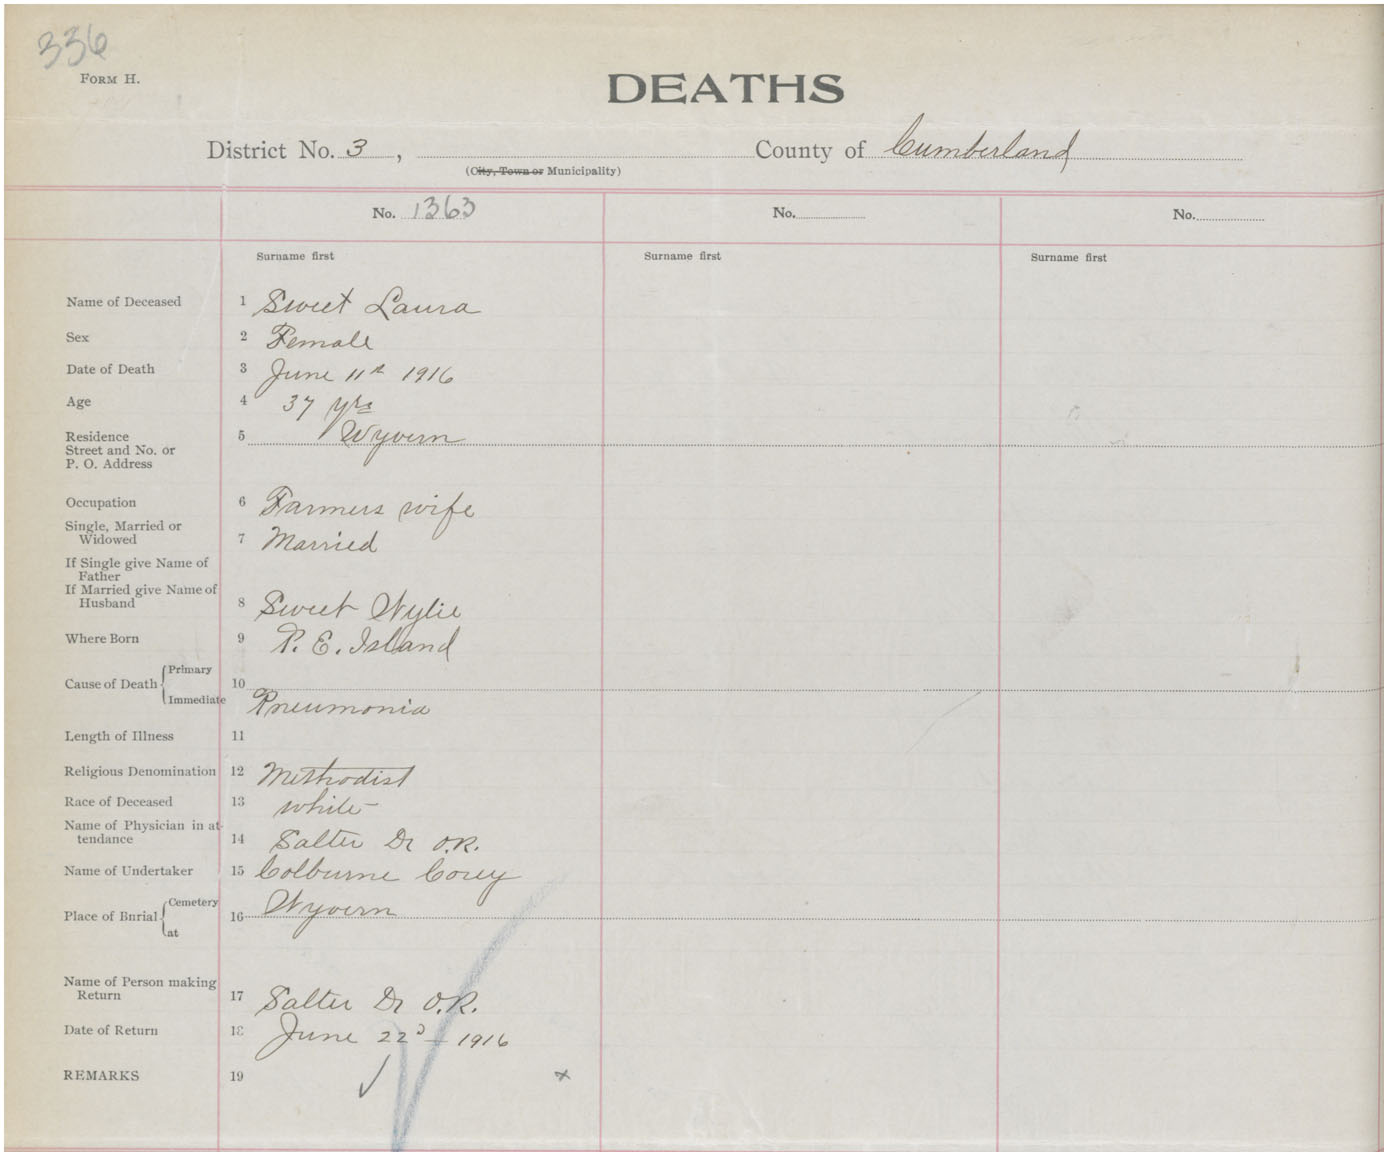 336
FORM H.
DEATHS
District No. 3, County of Cumberland
(City, Town or Municipality)
No. 1363 No. No.
Surname first Surname first Surname first
Name of Deceased 1 Sweet Laura
Sex 2 Female
Date of Death 3 June 11th 1916
Age 4 37 yrs
Residence 5 Wyvern
Street and No. or
P. O. Address
Occupation 6 Farmers wife
Single, Married or
Widowed 7 Married
If Single give Name of
Father
If Married give Name of
Husband 8 Sweet Wylie
Where Born 9 P. E. Island
Primary
Cause of Death 10
Immediate Pneumonia
Length of Illness 11
Religious Denomination 12 Methodist
Race of Deceased 13 white
Name of Physician in at-
tendance 14 Salter Dr O.R.
Name of Undertaker 15 Colburne Corey
Cemetery Wyvern
Place of Burial 16
at
Name of Person making
Return 17 Salter Dr O.R.
Date of Return 18 June 22d 1916
REMARKS 19